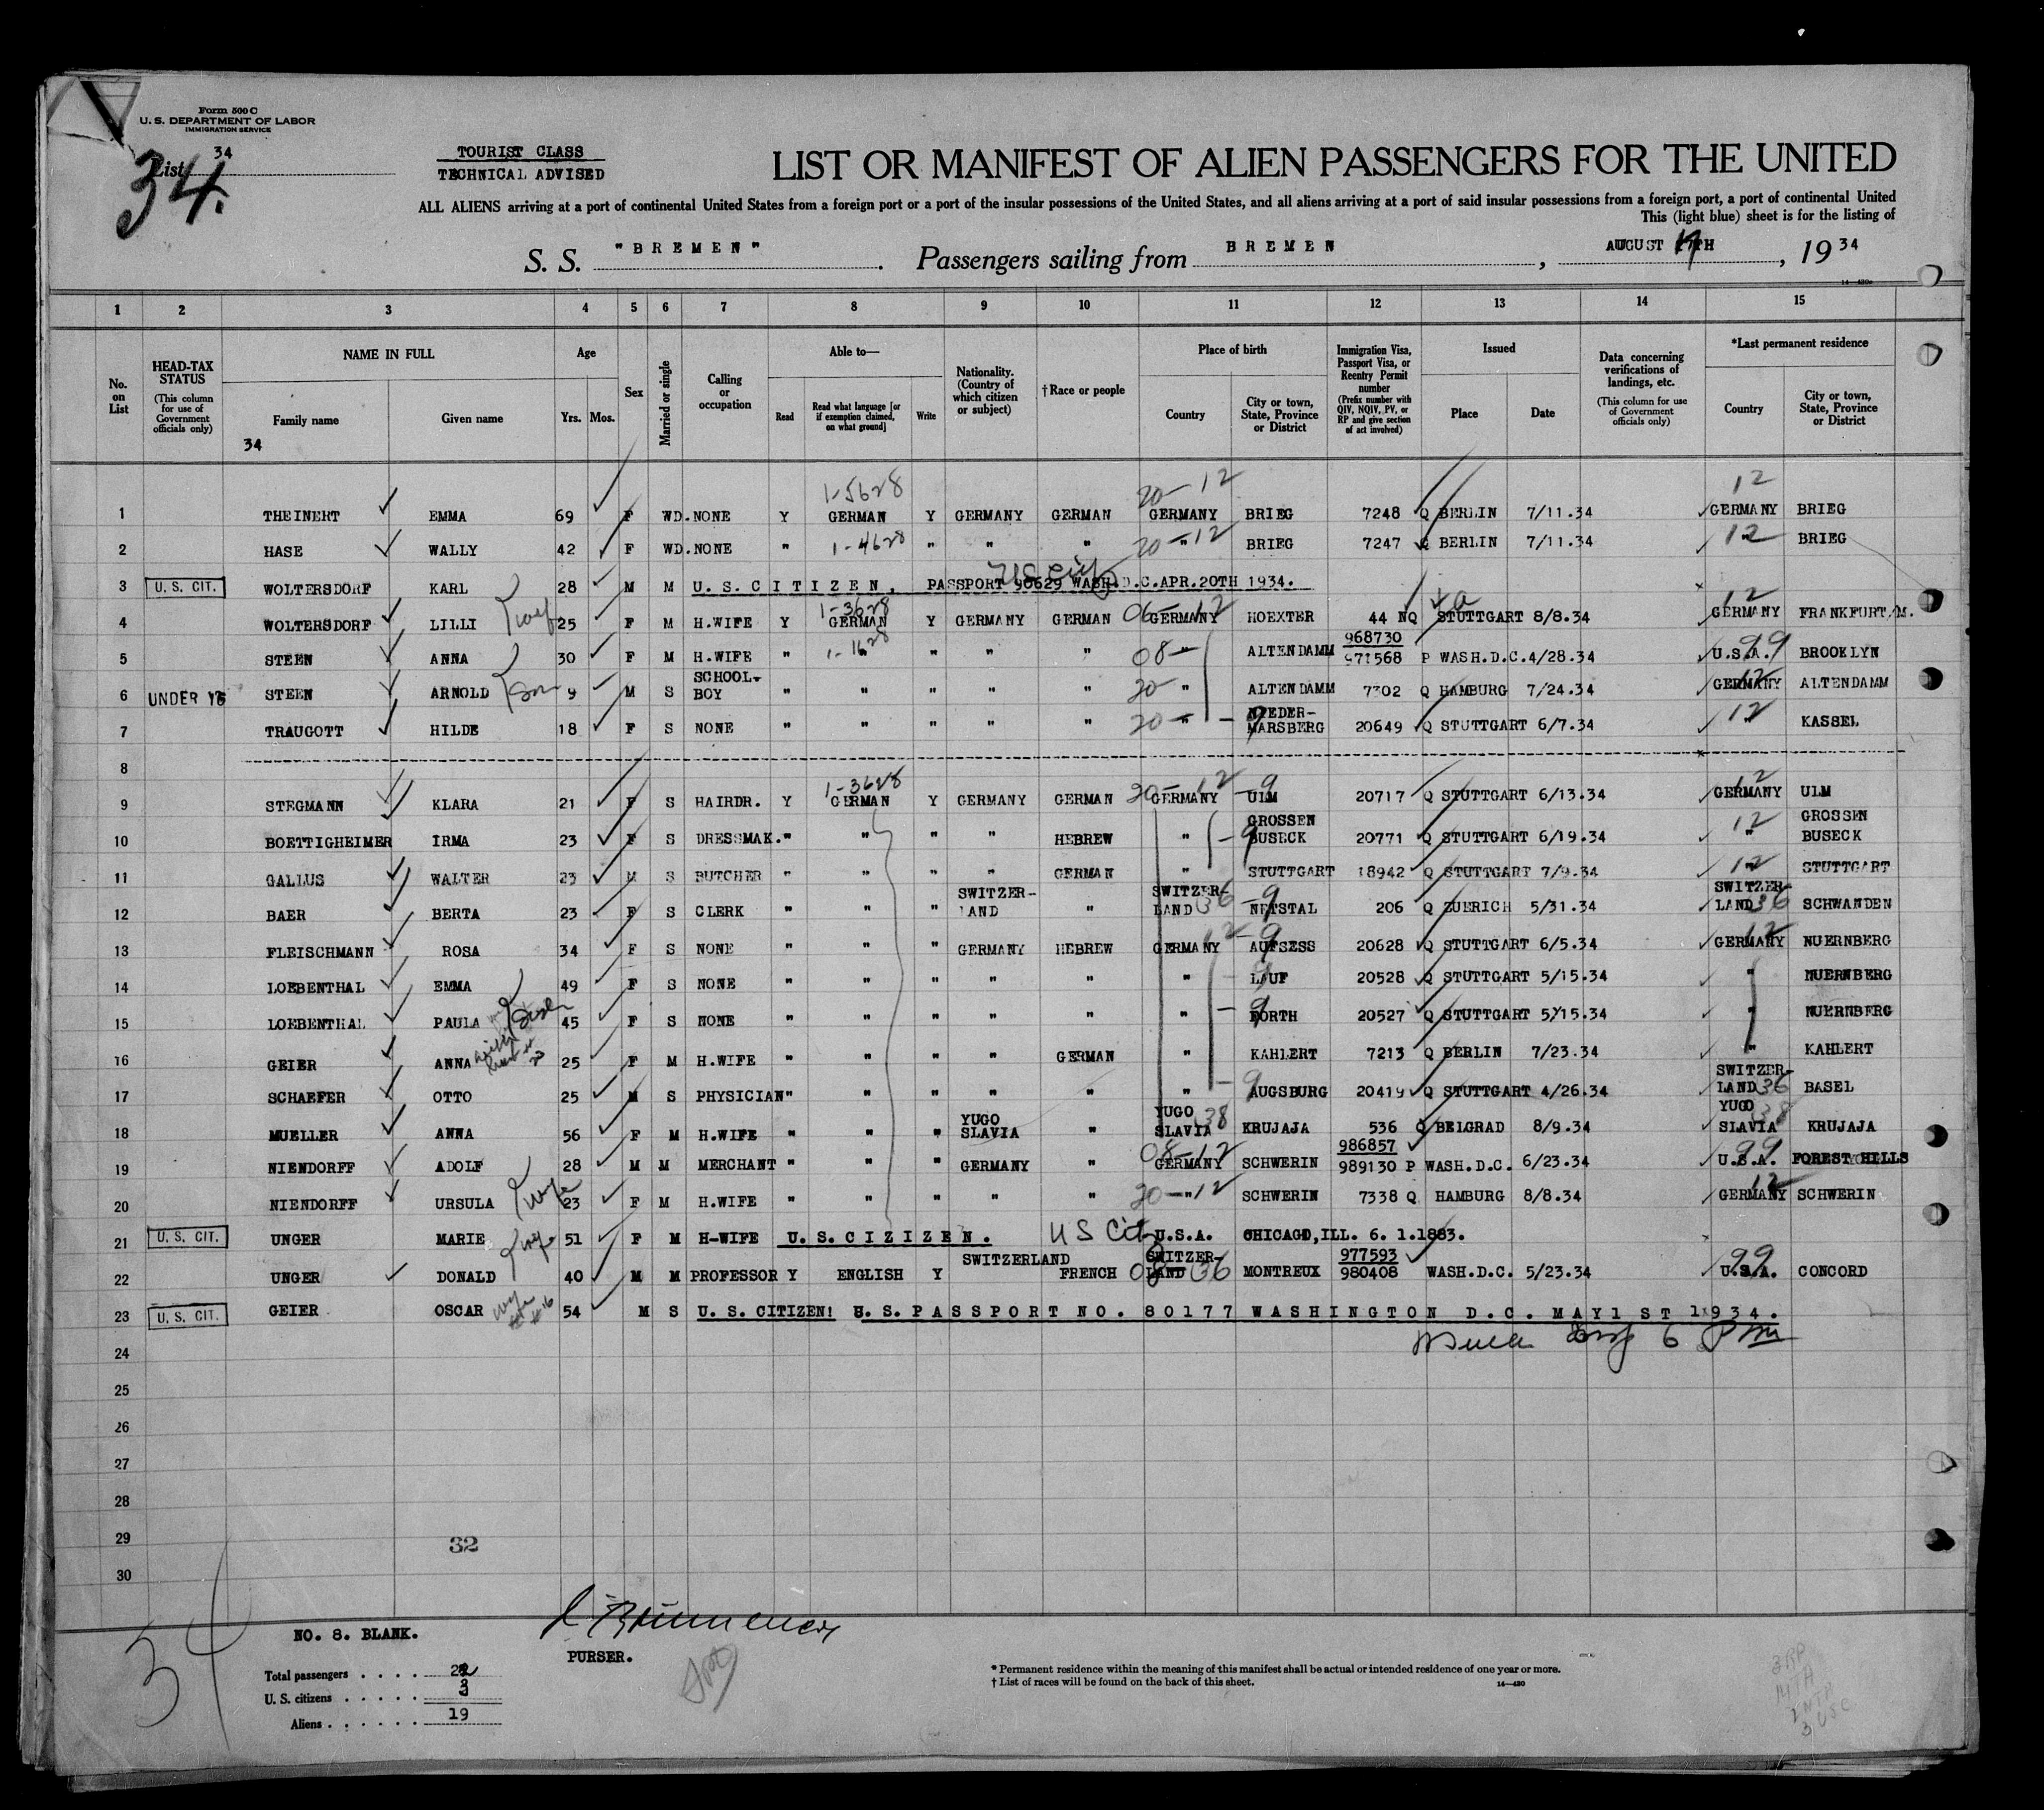 Form 500 C
U. S. DEPARTMENT OF LABOR
IMMIGRATION SERVICE
List 34
34.
TOURIST CLASS
TECHNICAL ADVISED
LIST OR MANIFEST OF ALIEN PASSENGERS FOR THE UNITED
ALL ALIENS arriving at a port of continental United States from a foreign port or a port of the insular possessions of the United States, and all aliens arriving at a port of said insular possessions from a foreign port, a port of continental United
This (light blue) sheet is for the listing of
S. S. "BREMEN". Passengers sailing from BREMEN, AUGUST 17TH, 1934
14—430a
1 2 3 4 5 6 7 8 9 10 11 12 13 14 15
No. on List
HEAD-TAX STATUS
(This column for use of Government officials only)
NAME IN FULL
Family name
Given name
34
Age
Yrs. Mos.
Sex
Married or single
Calling or occupation
Able to—
Read
Read what language [or if exemption claimed, on what ground]
Write
Nationality. (Country of which citizen or subject)
†Race or people
Place of birth
Country
City or town, State, Province or District
Immigration Visa, Passport Visa, or Reentry Permit number
(Prefix number with QIV, NQIV, PV, or RP and give section of act involved)
Issued
Place
Date
Data concerning verifications of landings, etc.
(This column for use of Government officials only)
*Last permanent residence
Country
City or town, State, Province or District
1-5628 20-12 12
1 THEINERT EMMA 69 F WD. NONE Y GERMAN Y GERMANY GERMAN GERMANY BRIEG 7248 Q BERLIN 7/11.34 GERMANY BRIEG
2 HASE WALLY 42 F WD. NONE " 1-4628 " " " 20-12 " BRIEG 7247 Q BERLIN 7/11.34 12 " BRIEG
3 U. S. CIT. WOLTERSDORF KARL 28 M M U. S. C I T I Z E N, PASSPORT 90629 WASH.D.C.APR.20TH 1934.
US Cit
4 WOLTERSDORF LILLI wife 25 F M H.WIFE Y 1-3628 GERMAN Y GERMANY GERMAN 06-12 GERMANY HOEXTER 44 NQ STUTTGART 8/8.34 12 GERMANY FRANKFURT/M.
968730
5 STEEN ANNA 30 F M H.WIFE " 1-1628 " " " " 08- ALTENDAMM 971568 P WASH.D.C.4/28.34 99 U.S.A. BROOKLYN
6 UNDER 16 STEEN ARNOLD Son 9 M S SCHOOL-BOY " " " " " 20- " ALTENDAMM 7302 Q HAMBURG 7/24.34 12 GERMANY ALTENDAMM
7 TRAUGOTT HILDE 18 F S NONE " " " " " 20- " NIEDER-MARSBERG 20649 Q STUTTGART 6/7.34 12 " KASSEL
8
9 STEGMANN KLARA 21 F S HAIRDR. Y 1-3628 GERMAN Y GERMANY GERMAN 20-12 GERMANY -9 ULM 20717 Q STUTTGART 6/13.34 12 GERMANY ULM
10 BOETTIGHEIMER IRMA 23 F S DRESSMAK. " " " " HEBREW " -9 GROSSEN BUSECK 20771 Q STUTTGART 6/19.34 12 " GROSSEN BUSECK
11 GALLUS WALTER 23 M S BUTCHER " " " " GERMAN " STUTTGART 18942 Q STUTTGART 7/9.34 12 " STUTTGART
12 BAER BERTA 23 F S CLERK " " " SWITZER-LAND " SWITZER-LAND 36 -9 NETSTAL 206 Q ZUERICH 5/31.34 SWITZER-LAND 36 SCHWANDEN
13 FLEISCHMANN ROSA 34 F S NONE " " " GERMANY HEBREW GERMANY 12 -9 AUFSESS 20628 Q STUTTGART 6/5.34 12 GERMANY NUERNBERG
14 LOEBENTHAL EMMA 49 F S NONE " " " " " " -9 LAUF 20528 Q STUTTGART 5/15.34 " NUERNBERG
15 LOEBENTHAL PAULA Sister 45 F S NONE " " " " " " -9 FORTH 20527 Q STUTTGART 5/15.34 " NUERNBERG
16 GEIER ANNA 25 F M H.WIFE " " " " GERMAN " KAHLERT 7213 Q BERLIN 7/23.34 " KAHLERT
17 SCHAEFER OTTO 25 M S PHYSICIAN " " " " " " -9 AUGSBURG 20419 Q STUTTGART 4/26.34 SWITZER-LAND 36 BASEL
18 MUELLER ANNA 56 F M H.WIFE " " " YUGO SLAVIA " YUGO SLAVIA 38 KRUJAJA 536 Q BELGRAD 8/9.34 YUGO SLAVIA 38 KRUJAJA
986857
19 NIENDORFF ADOLF 28 M M MERCHANT " " " GERMANY " 08-12 GERMANY SCHWERIN 989130 P WASH.D.C. 6/23.34 99 U.S.A. FOREST HILLS
20 NIENDORFF URSULA wife 23 F M H.WIFE " " " " " 20-12 " SCHWERIN 7338 Q HAMBURG 8/8.34 12 GERMANY SCHWERIN
21 U. S. CIT. UNGER MARIE wife 51 F M H-WIFE U. S. C I Z I Z E N. US Cit U.S.A. CHICAGO,ILL. 6. 1.1883.
977593
22 UNGER DONALD 40 M M PROFESSOR Y ENGLISH Y SWITZERLAND FRENCH 08 SWITZER-LAND 36 MONTREUX 980408 WASH.D.C. 5/23.34 99 U.S.A. CONCORD
23 U. S. CIT. GEIER OSCAR 54 M S U. S. CITIZEN! U. S. P A S S P O R T N O. 8 0 1 7 7 W A S H I N G T O N D. C. M A Y 1 S T 1 9 3 4.
24
25
26
27
28
29
30
32
34
NO. 8. BLANK.
PURSER.
Total passengers . . . . 22
U. S. citizens . . . . . 3
Aliens . . . . . . 19
* Permanent residence within the meaning of this manifest shall be actual or intended residence of one year or more.
† List of races will be found on the back of this sheet.
14—430
3 RP
3 USC